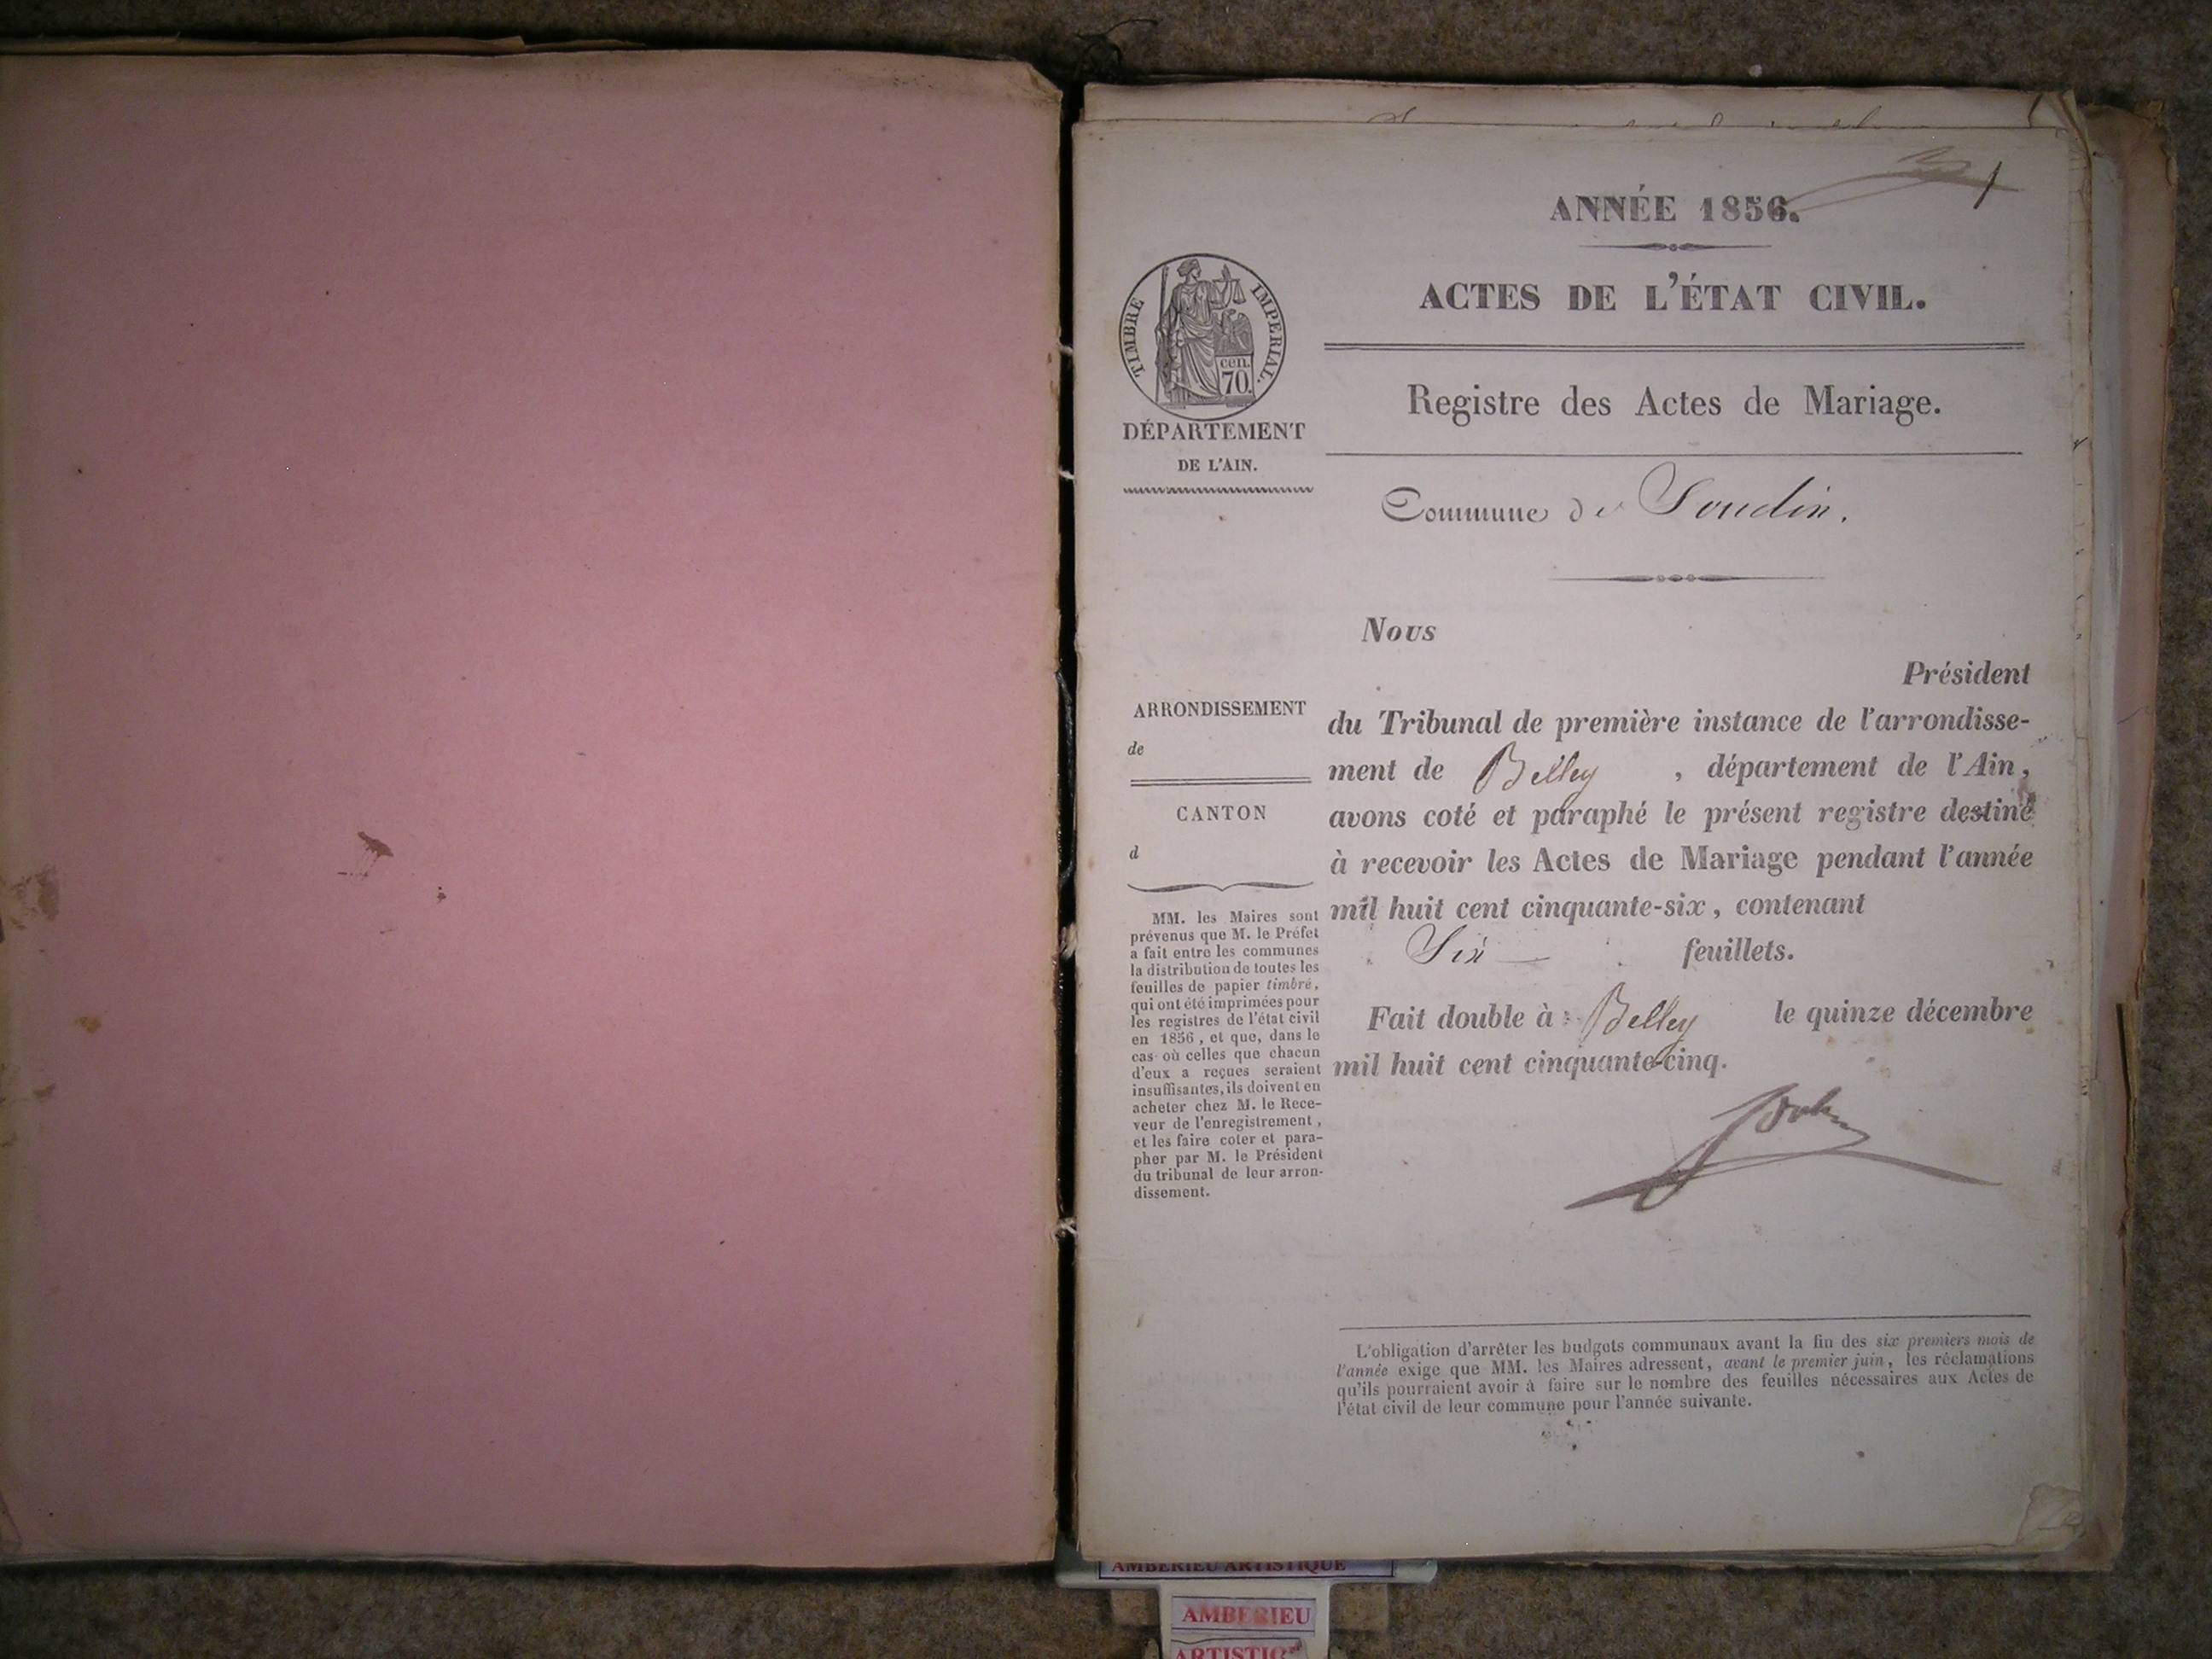 ANNÉE 1856.
1
ACTES DE L'ÉTAT CIVIL.
TIMBRE IMPERIAL.
cen.
70.
Registre des Actes de Mariage.
DÉPARTEMENT
DE L'AIN.
Commune de Soudin.
Nous
Président
du Tribunal de première instance de l'arrondisse-
ment de Belley , département de l'Ain,
avons coté et paraphé le présent registre destiné
à recevoir les Actes de Mariage pendant l'année
mil huit cent cinquante-six, contenant
Six feuillets.
Fait double à Belley le quinze décembre
mil huit cent cinquante-cinq.
ARRONDISSEMENT
de
CANTON
d
MM. les Maires sont
prévenus que M. le Préfet
a fait entre les communes
la distribution de toutes les
feuilles de papier timbré,
qui ont été imprimées pour
les registres de l'état civil
en 1856, et que, dans le
cas où celles que chacun
d'eux a reçues seraient
insuffisantes, ils doivent en
acheter chez M. le Rece-
veur de l'enregistrement,
et les faire coter et para-
pher par M. le Président
du tribunal de leur arron-
dissement.
L'obligation d'arrêter les budgets communaux avant la fin des six premiers mois de
l'année exige que MM. les Maires adressent, avant le premier juin, les réclamations
qu'ils pourraient avoir à faire sur le nombre des feuilles nécessaires aux Actes de
l'état civil de leur commune pour l'année suivante.
AMBERIEU ARTISTIQUE
AMBERIEU